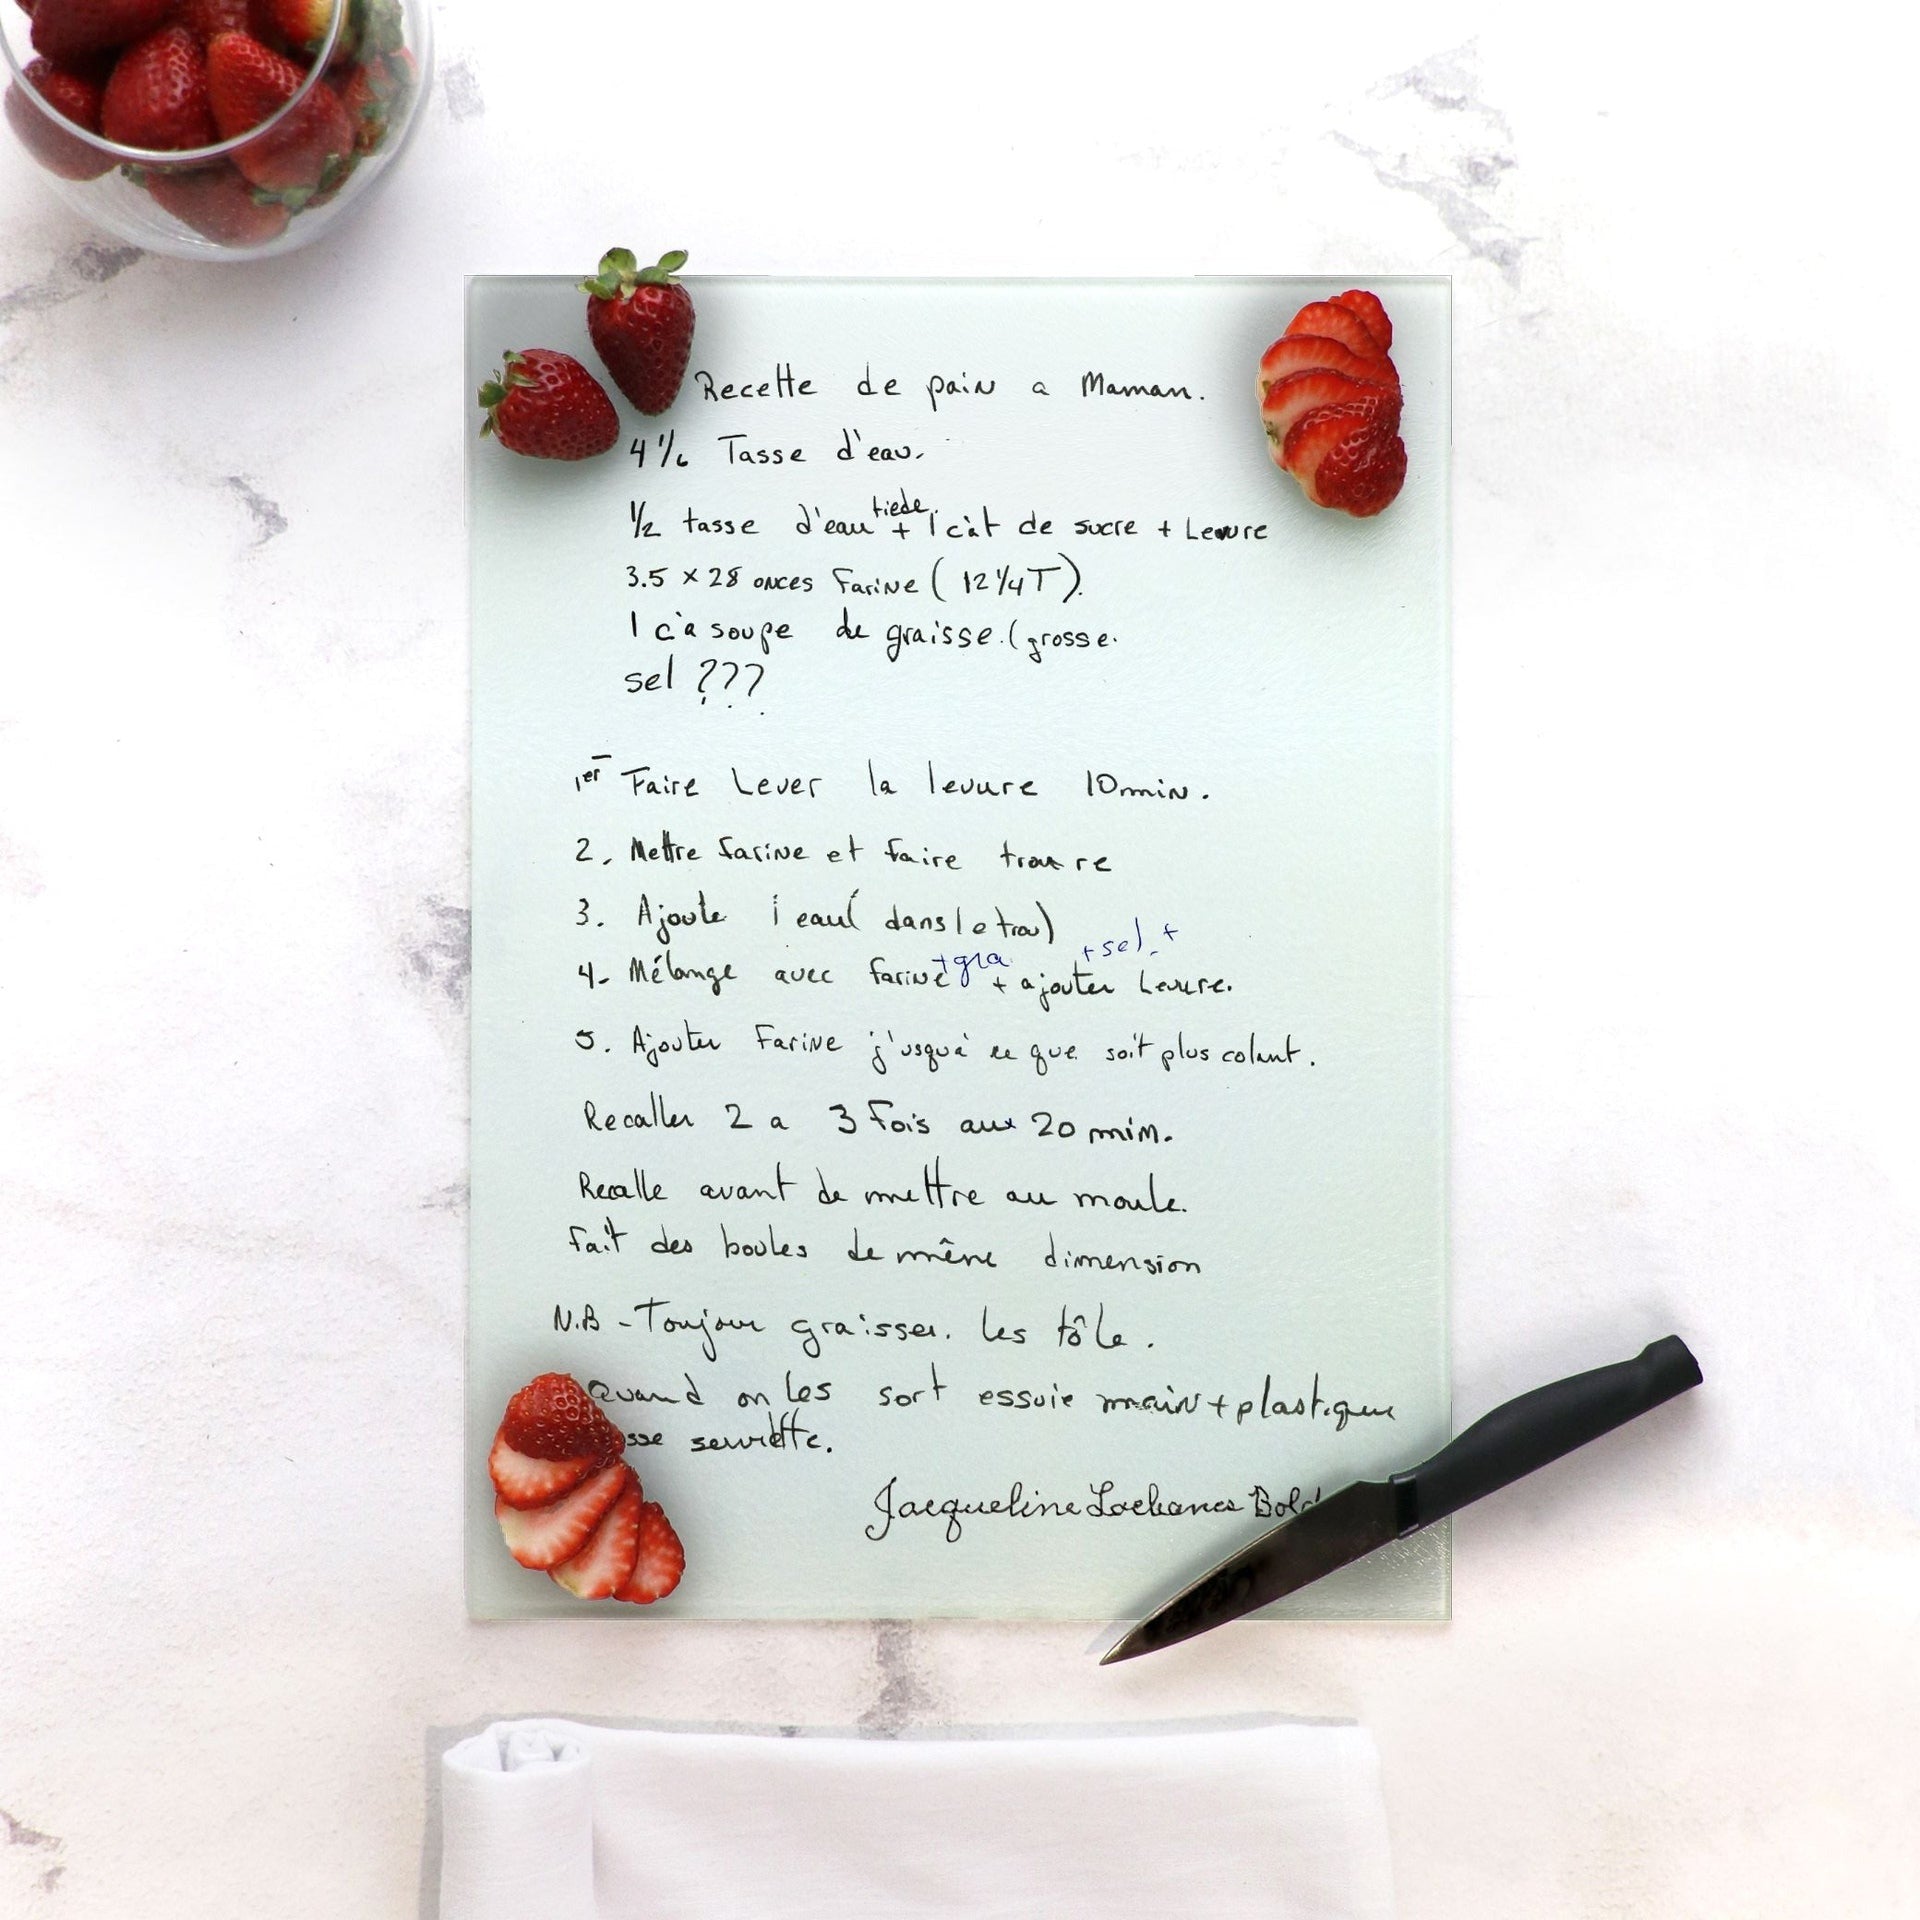 Recette de pain a Maman.
4 1/2 Tasse d'eau.
1/2 tasse d'eau tiede + 1 càt de sucre + Levure
3.5 x 28 onces Farine (12 1/4 T).
1 c'a soupe de graisse. (grosse.
sel ???
1er Faire Lever la levure 10min.
2. Mettre farine et faire
3. Ajoute l eau (dans le trou)
+gra +sel +
4- Mélange avec farine + ajouter Levure.
5. Ajouter Farine j'usqua ce que soit plus colant.
Recaller 2 a 3 Fois aux 20 min.
Recalle avant de mettre au moule.
fait des boules de même dimension
N.B - Toujour graisser. les tôle.
Quand on les sort essuie main + plastique
serviette.
Jacqueline Lachance